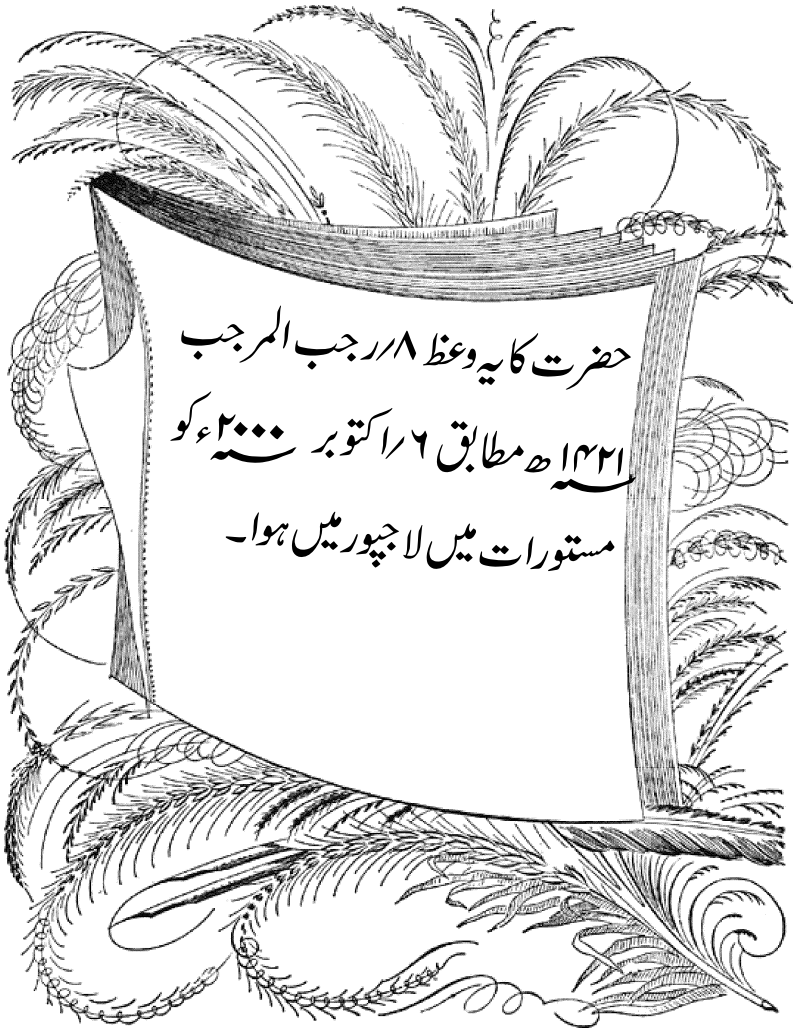 حضرت کا یہ وعظ ۸/رجب المرجب
۱۴۲۱؁ھ مطابق ۶/اکتوبر ۲۰۰۰؁ء کو
مستورات میں لاجپور میں ہوا۔